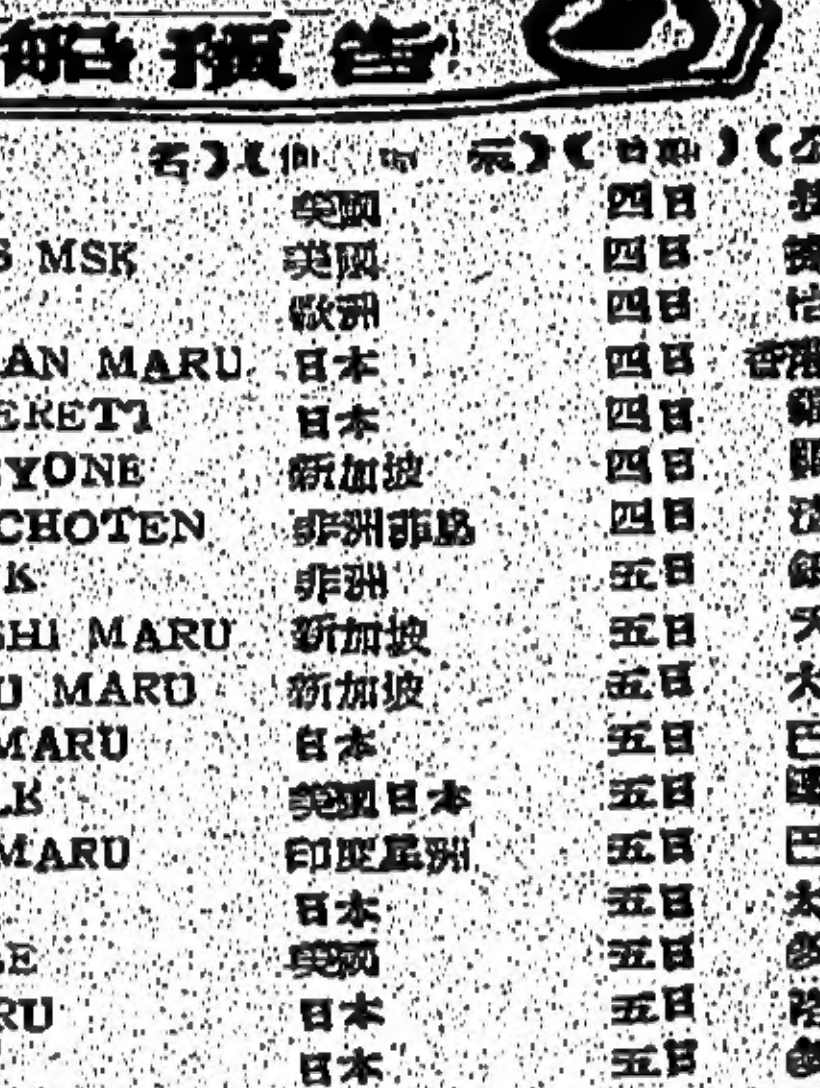 船預告
名)(日期)(
美國 四日
MSK 美國 四日
歐洲 四日
AN MARU 日本 四日 香港
ERETT 日本 四日
YONE 新加坡 四日
CHOTEN 非洲菲島 四日
K 非洲 五日
SHI MARU 新加坡 五日 天
U MARU 新加坡 五日 太
MARU 日本 五日 巴
LK 美國日本 五日
MARU 印度星洲 五日 巴
日本 五日 太
LE 美國 五日
RU 日本 五日
日本 五日